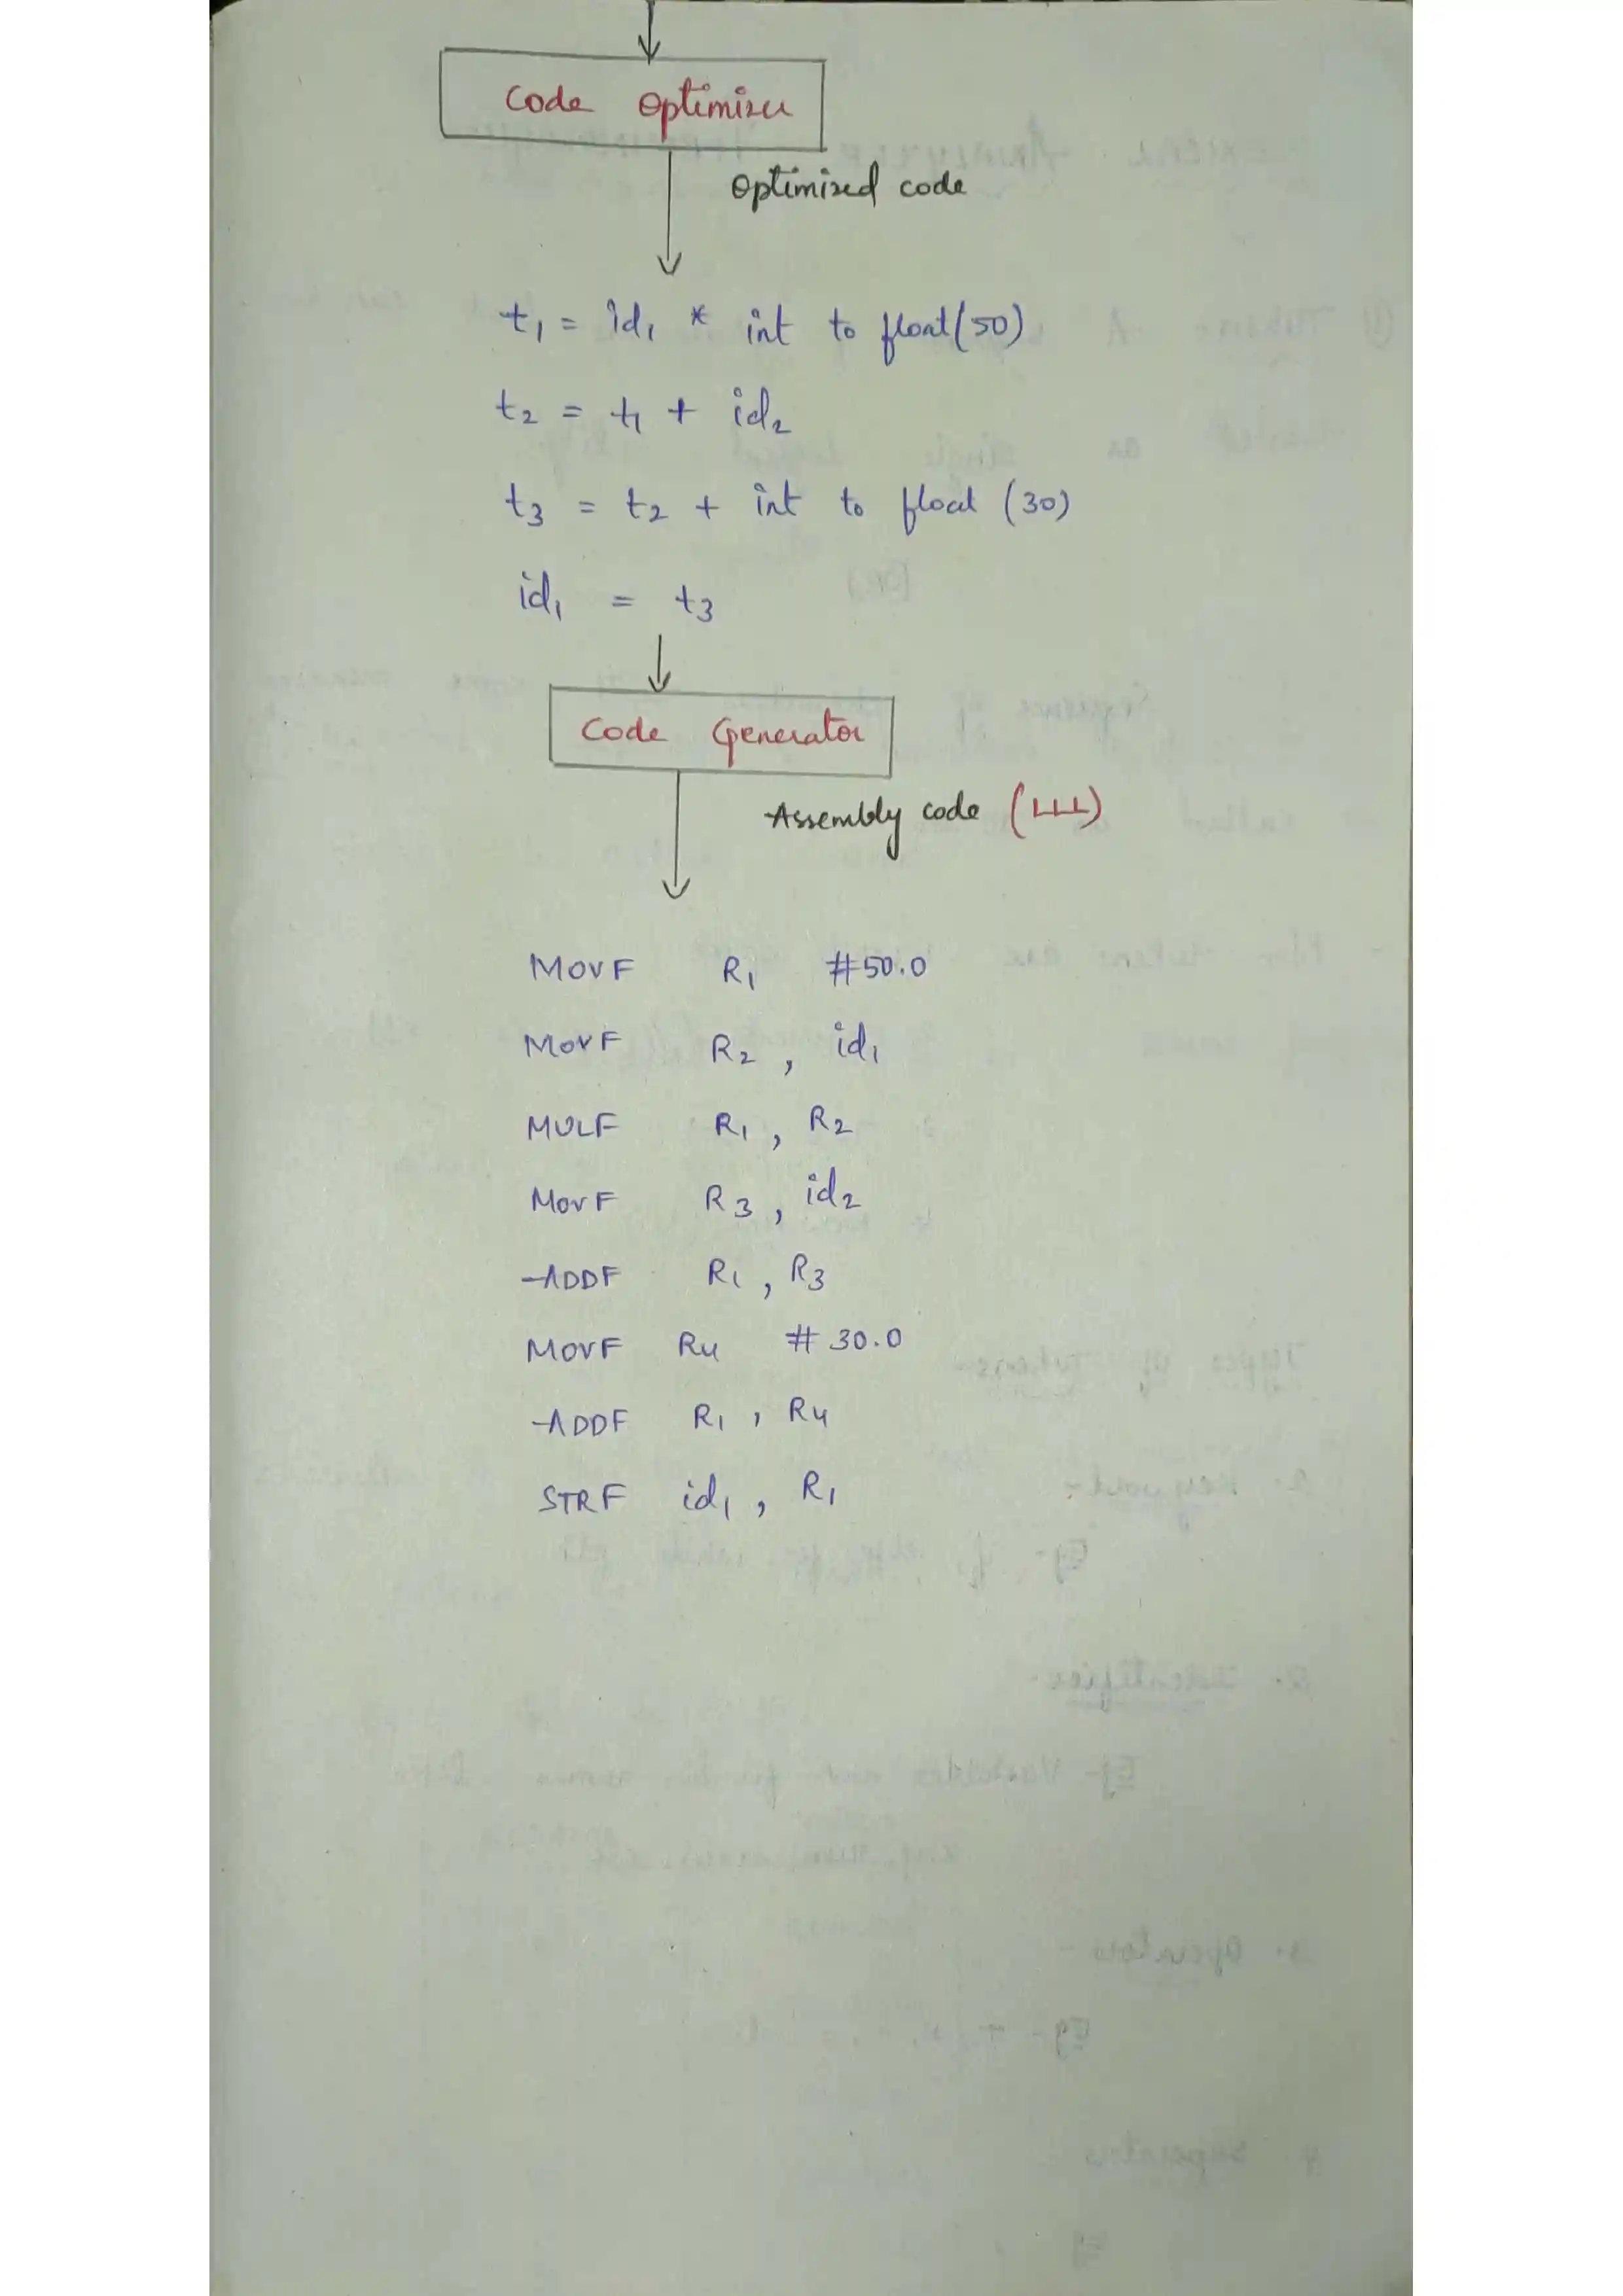 Code Optimizer
Optimized code
t₁ = id₁ * int to float(50)
t₂ = t₁ + id₂
t₃ = t₂ + int to float (30)
id₁ = t₃
Code Generator
Assembly code (LLL)
MOVF R₁ #50.0
MOVF R₂ , id₁
MULF R₁ , R₂
MOVF R₃ , id₂
ADDF R₁ , R₃
MOVF R₄ # 30.0
ADDF R₁ , R₄
STRF id₁ , R₁